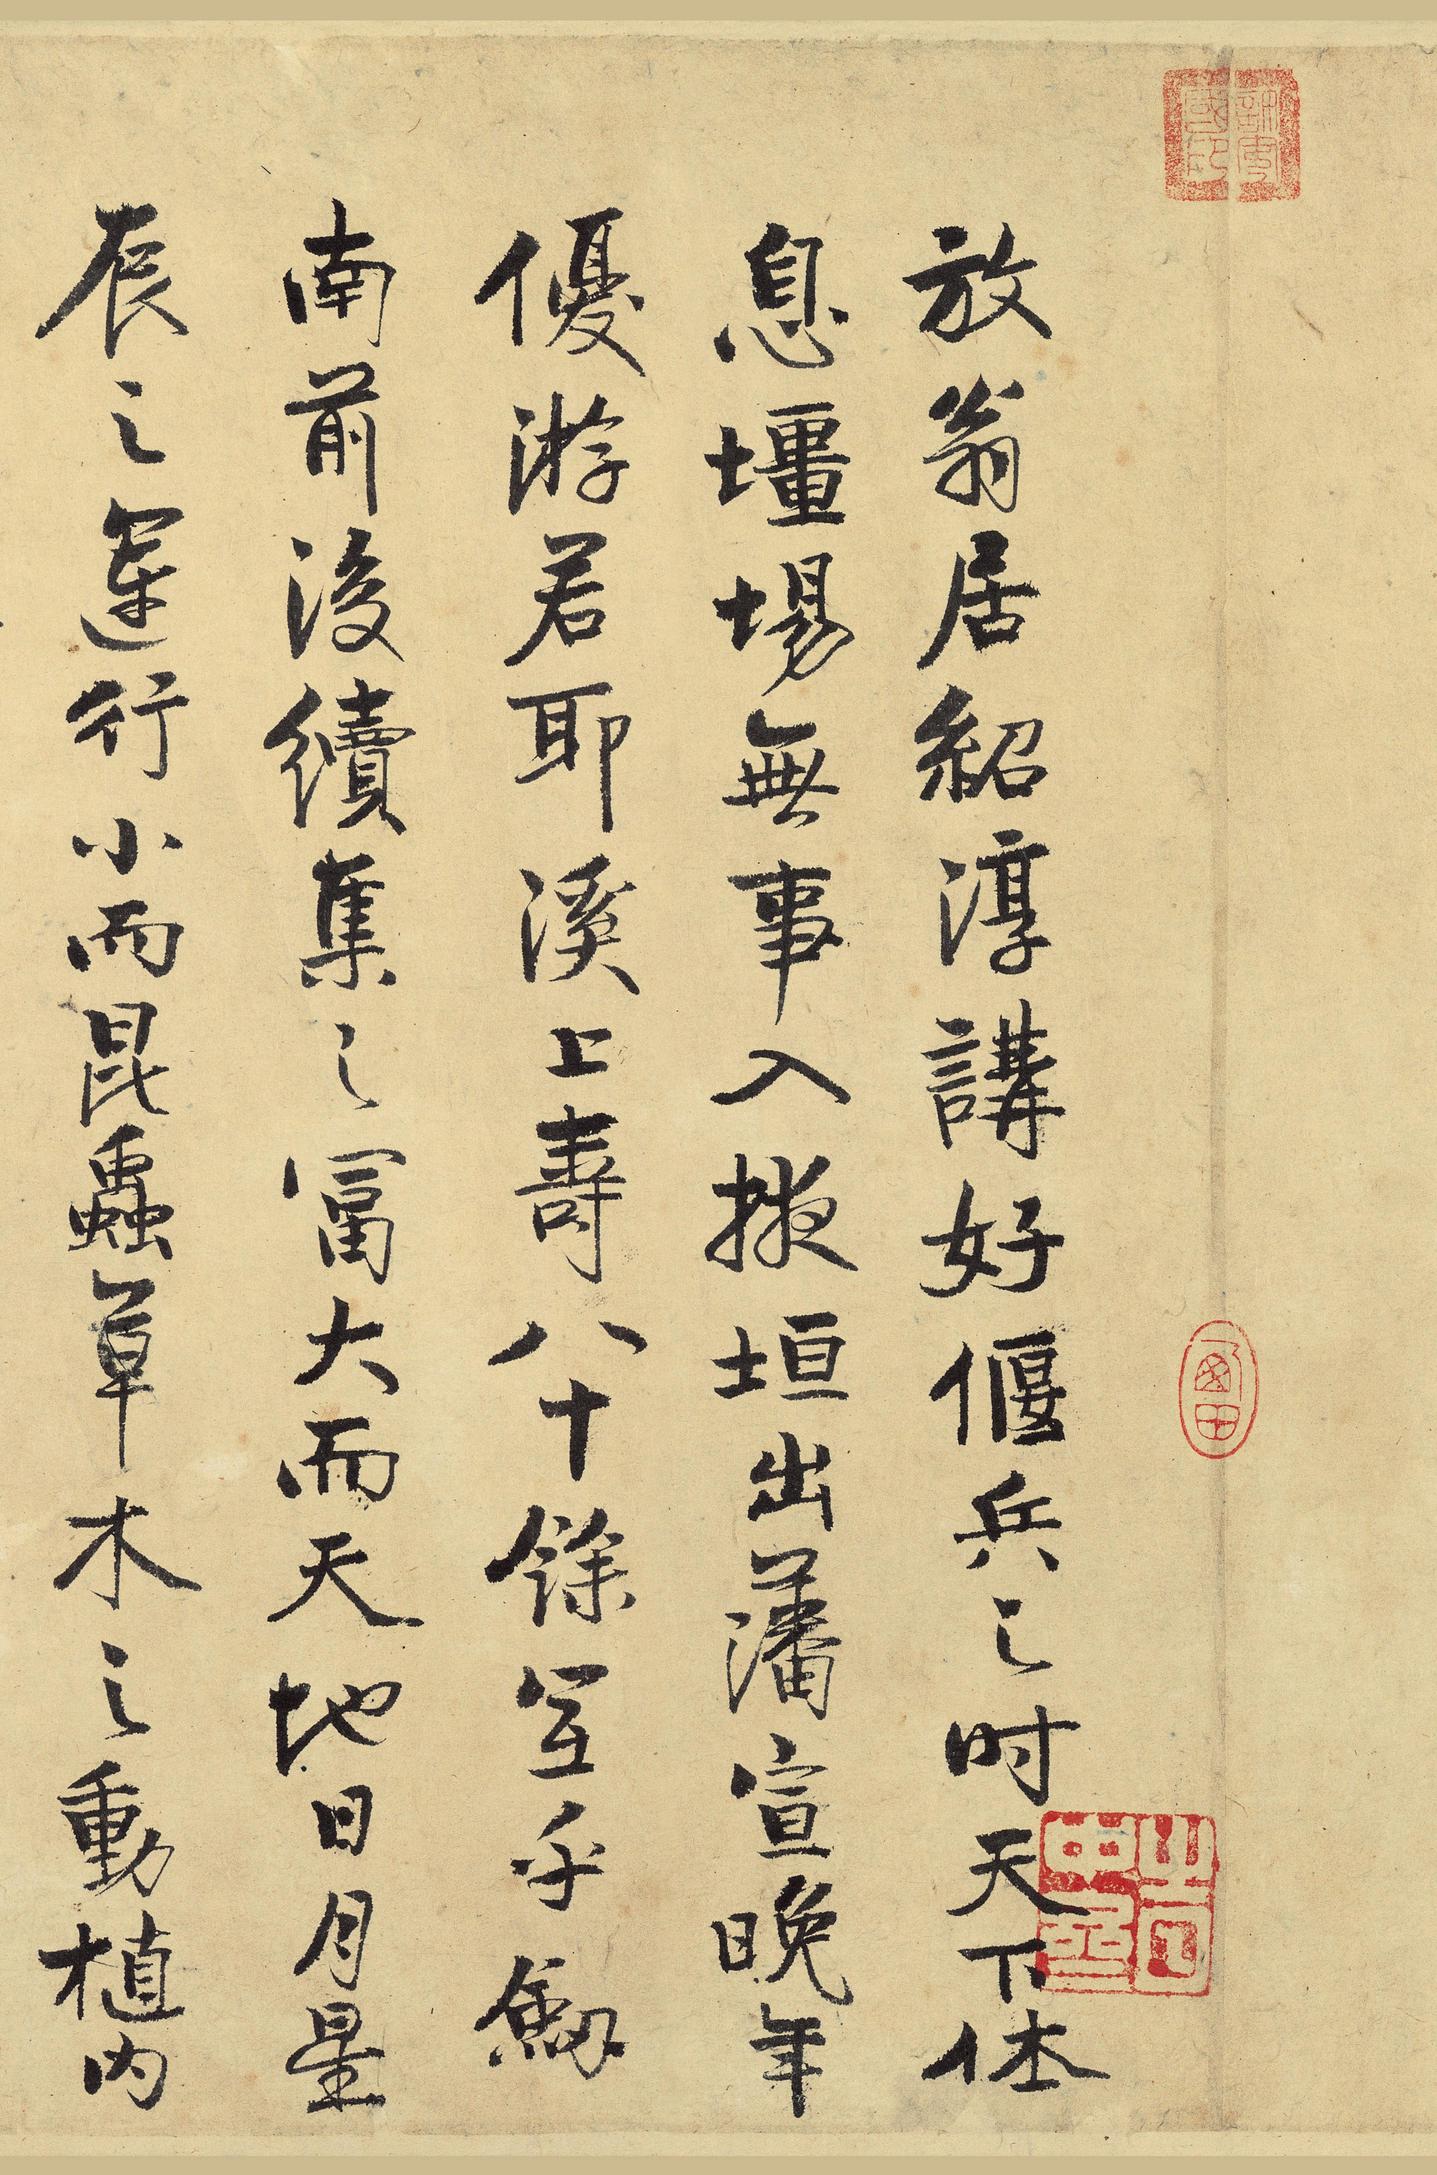 放翁居紹淳講好偃兵之時天下休
息壃場無事入掖垣出藩宣晚年
優游若耶溪上壽八十餘宜乎劔
南前後續集之富大而天地日月星
辰之運行小而昆蟲草木之動植内